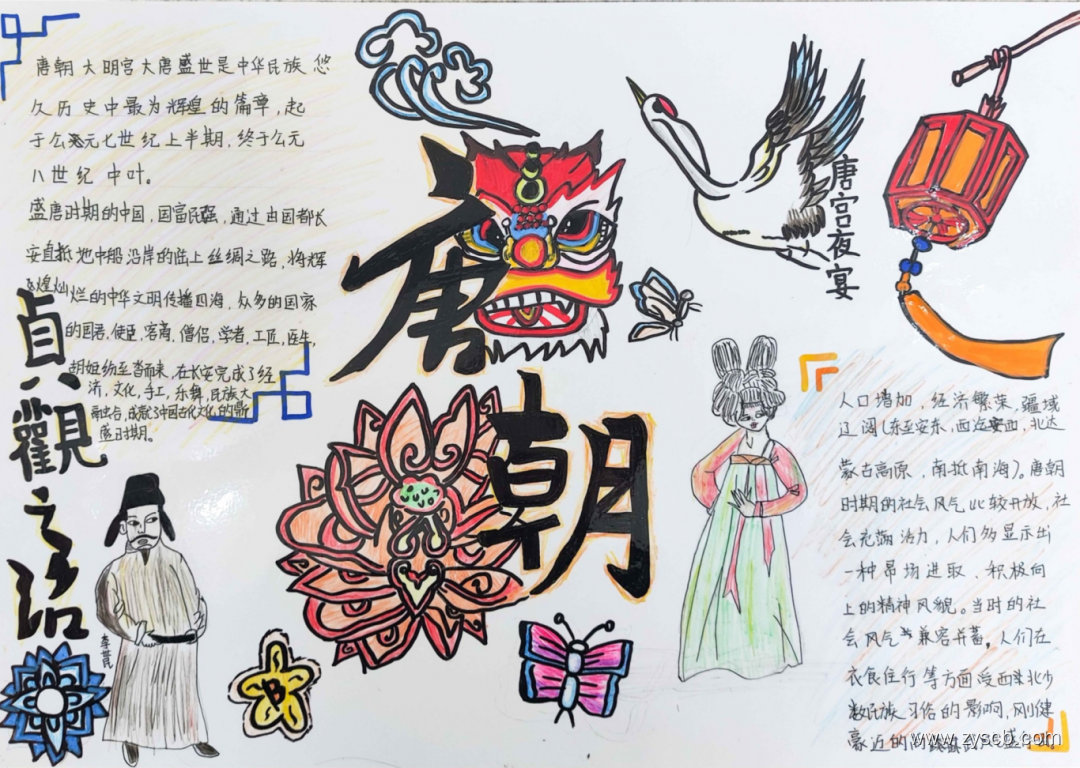 唐朝大明宫大唐盛世是中华民族悠
久历史中最为辉煌的篇章，起
于公元七世纪上半期，终于公元
八世纪中叶。
盛唐时期的中国，国富民强，通过由国都长
安直抵地中海沿岸的陆上丝绸之路，将辉
煌灿烂的中华文明传播四海，众多的国家
的国君，使臣，客商，僧侣，学者，工匠，医生，
胡姬纷至沓而来，在长安完成了经
济，文化，手工，乐舞，民族大
融合，成就了中国古代文化的鼎
盛时期。
貞觀之治
李世民
唐朝
唐宫夜宴
B
人口增加，经济繁荣，疆域
辽阔（东至安东，西达安西，北达
蒙古高原，南抵南海）。唐朝
时期的社会风气比较开放，社
会充满活力，人们多显示出
一种昂扬进取、积极向
上的精神风貌。当时的社
会风气兼容并蓄。人们在
衣食住行等方面受西来北少
数民族习俗的影响，刚健
豪迈的
www.zyscb.com